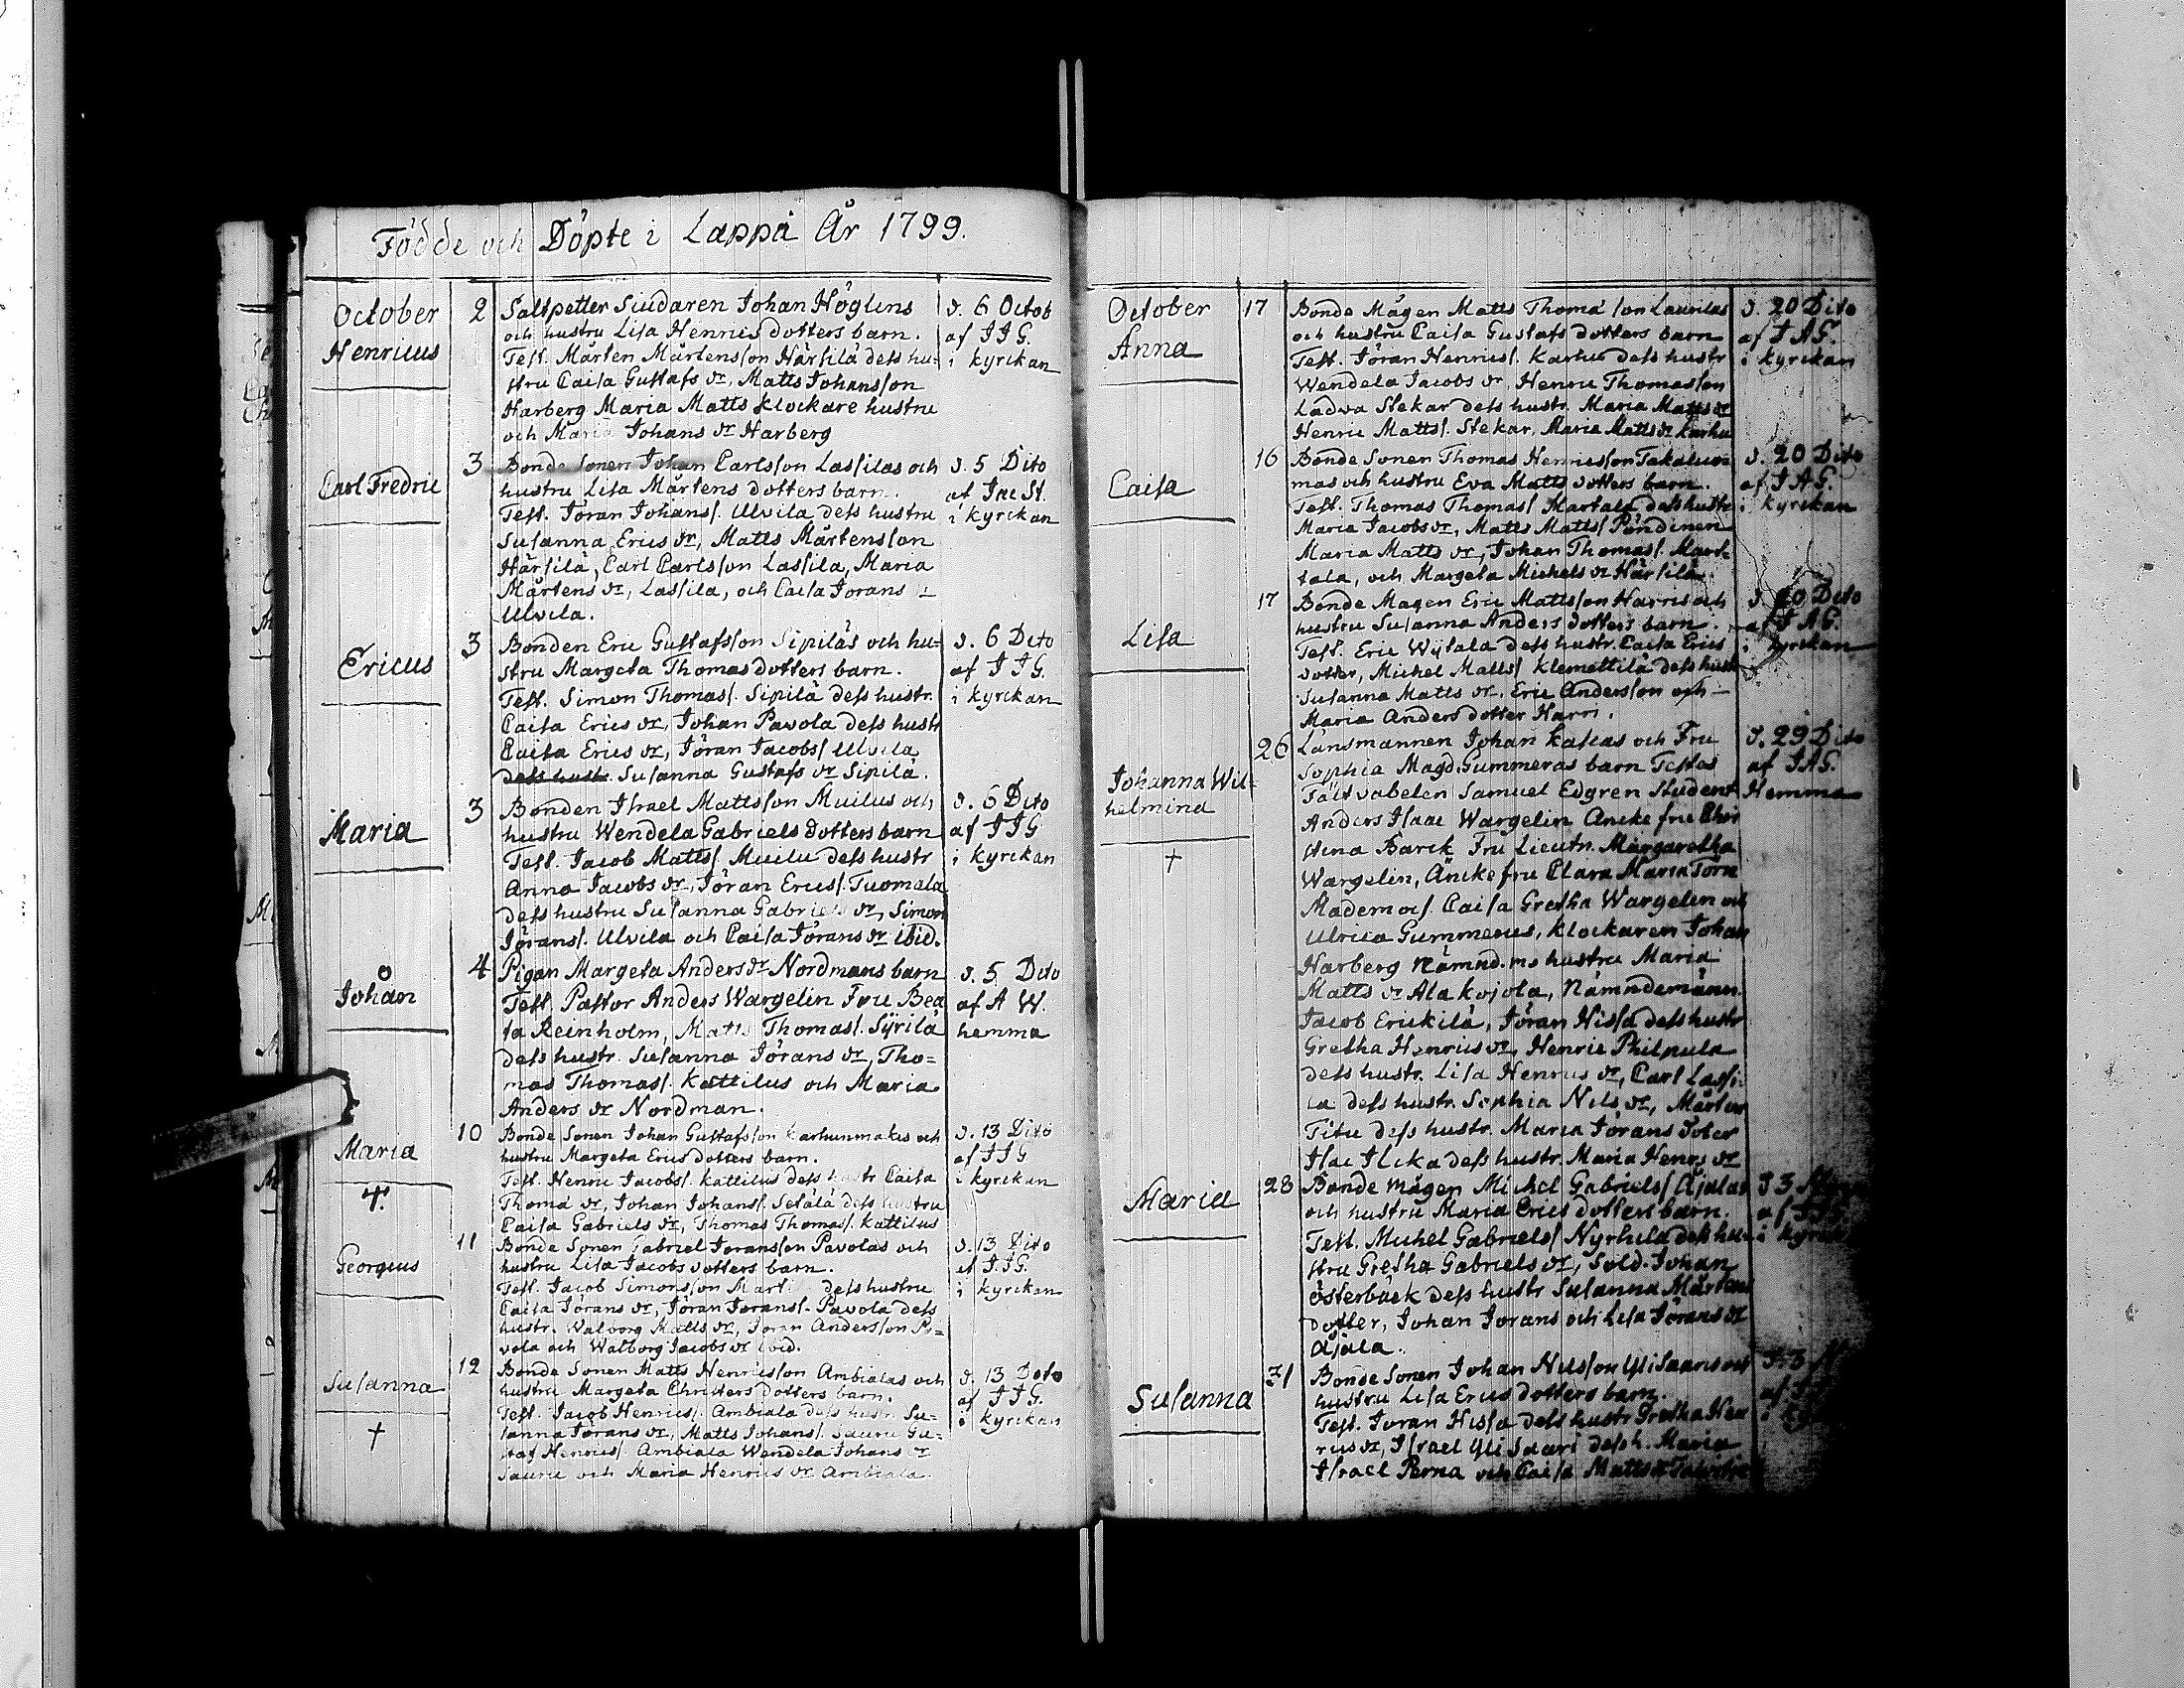 Födde och Döpte i Lappå År 1799.
October 2 Saltpetter Siudaren Johan Höglins d. 6 Octob
Henricus och hustru Lisa Henrics dotters barn. af JJG.
Test. Mårten Mårtensson Härsilä dess hu= i kyrckan
stru Caisa Gustafs dr, Matts Johansson
Harberg Maria Matts klockare hustru
och Maria Johans dr Harberg
3 Bonde Sonen Johan Carlsson Lassilas och d. 5 Dito
Carl Fredric hustru Lisa Mårtens dotters barn. af Jac St.
Test. Jöran Johans/. Ulvila dess hustru i kyrckan
Susanna Erics dr, Matts Mårtensson
Härsilä, Carl Carlsson Lassila, Maria
Mårtens dr, Lassila, och Caisa Jörans –
Ulvila.
3 Bonden Eric Gustafsson Sipiläs och hu= d. 6 Dito
Ericus stru Margeta Thomas dotters barn. af JJG.
Test. Simon Thomas/. Sipilä dess hustr. i kyrckan
Caisa Erics dr, Johan Pavola dess hustr
Caisa Erics dr, Jöran Jacobs/ Ulvila
dess hust. Susanna Gustafs dr Sipilä.
3 Bonden Israel Mattsson Muilus och d. 6 Dito
Maria hustru Wendela Gabriels dotters barn af JJG
Test. Jacob Matts/. Muilu dess hustr i kyrckan
Anna Jacobs dr, Jöran Erics/. Tuomala
dess hustru Susanna Gabriels dr, Simon
Jörans/. Ulvila och Caisa Jörans dr ibid.
4 Pigan Margeta Anders dr Nordmans barn d. 5 Dito
Johan Test. Pastor Anders Wargelin Fru Bea af A W.
ta Reinholm, Matts Thomas/. Syrilä hemma
dess hustr. Susanna Jörans dr, Tho=
mas Thomas/. Kattilus och Maria
Anders dr Nordman.
10 Bonde Sonen Johan Gustafsson Karhunmakis och d. 13 Dito
Maria hustru Margeta Erics dotters barn. af JJG
Test. Henric Jacobs/. Kattilus dess hustr Caisa i kyrckan
Thoma dr, Johan Johans/. Setälä dess hustru
Caisa Gabriels dr, Thomas Thomas/. Kattilus
11 Bonde Sonen Gabriel Joransson Pavolas och d. 13 Dito
Georgius hustru Lisa Jacobs dotters barn. af JJG.
Test. Jacob Simonsson dess hustru i kyrckan
Caisa Jörans dr, Jöran Jorans/. Pavola dess
hustr. Walborg Matts dr, Joran Andersson Pa=
vola och Walborg Jacobs dr ibid.
12 Bonde Sonen Matts Henricsson Ambialas och d. 13 Dito
Susanna hustru Margeta Christers dotters barn. af JJG.
Test. Jacob Henrics/. Ambiala dess hustr. Su= i kyrckan
† sanna Jörans dr, Matts Johans/. Sauru Gu=
staf Henrics/. Ambiala Wendela Johans dr
Sauru och Maria Henrics dr Ambiala.
October 17 Bonde Mågen Matts Thomasson Laurilas d. 20 Dito
Anna och hustru Caisa Gustafs dotters barn af JAG.
Test. Jöran Henrics/. Karhu dess hustr i kyrckan
Wendela Jacobs dr, Henric Thomasson
Ladva Stekar dess hustr. Maria Matts dr
Henric Matts/. Stekar, Maria Matts dr Karhu
16 Bonde Sonen Thomas Henricsson Takaluo= d. 20 Dito
Caisa mas och hustru Eva Matts dotters barn. af JAG.
Test. Thomas Thomas/ Martala dess hustr i kyrckan
Maria Jacobs dr, Matts Matts/ Pöndinen
Maria Matts dr, Johan Thomas/. Mar=
tala, och Margeta Michels dr Härsilä
17 Bonde Magen Eric Mattsson Harris och d. 20 Dito
Lisa hustru Susanna Anders dotters barn. af JAG.
Test. Eric Wysala dess hustr. Caisa Erics i kyrckan
dotter, Michel Matts/ Klemettilä dess hust
Susanna Matts dr. Eric Andersson och –
Maria Anders dotter Harri.
26 Länsmannen Johan Kallas och Fru d. 29 Dito
Johanna Wil= Sophia Magd. Gummeras barn Testes af JAG.
helmina Fältvabelen Samuel Edgren Student Hemma
Anders Isaac Wargelin Ancke fru Chri
† stina Barck Fru Lieutn. Margaretha
Wargelin, Äncke fru Clara Maria Törn
Mademois/. Caisa Gretha Wargelin och
Ulrica Gummerus, klockaren Johan
Harberg Nämnd.ms hustru Maria
Matts dr Alakojola, Nämndemänn.
Jacob Erickilä, Jöran Hissa dess hustr
Gretha Henrics dr, Henric Philpula
dess hustr. Lisa Henrics dr, Carl Lassi=
la dess hustr. Sophia Nils dr, Mårten
Titu dess hustr. Maria Jörans doter
Isac Ilcka dess hustr. Maria Henrs dr
28 Bonde mågen Michel Gabriels/ Äjälas d 3
Maria och hustru Maria Erics dotters barn. af
Test. Michel Gabriels/ Nyrhilä dess hu= i kyrck
stru Gretha Gabriels dr, Sold. Johan
Österbäck dess hustr Susanna Mårtens
Dotter, Johan Jorans och Lisa Jörans dr
Äjälä.
31 Bonde Sonen Johan Nilsson Yli Saaris och
Susanna hustru Lisa Erics dotters barn.
Test. Joran Hissa dess hustr Gretha Hen
rics dr, Israel Yli Saari dess h. Maria
Israel Perna och Caisa Matts dr